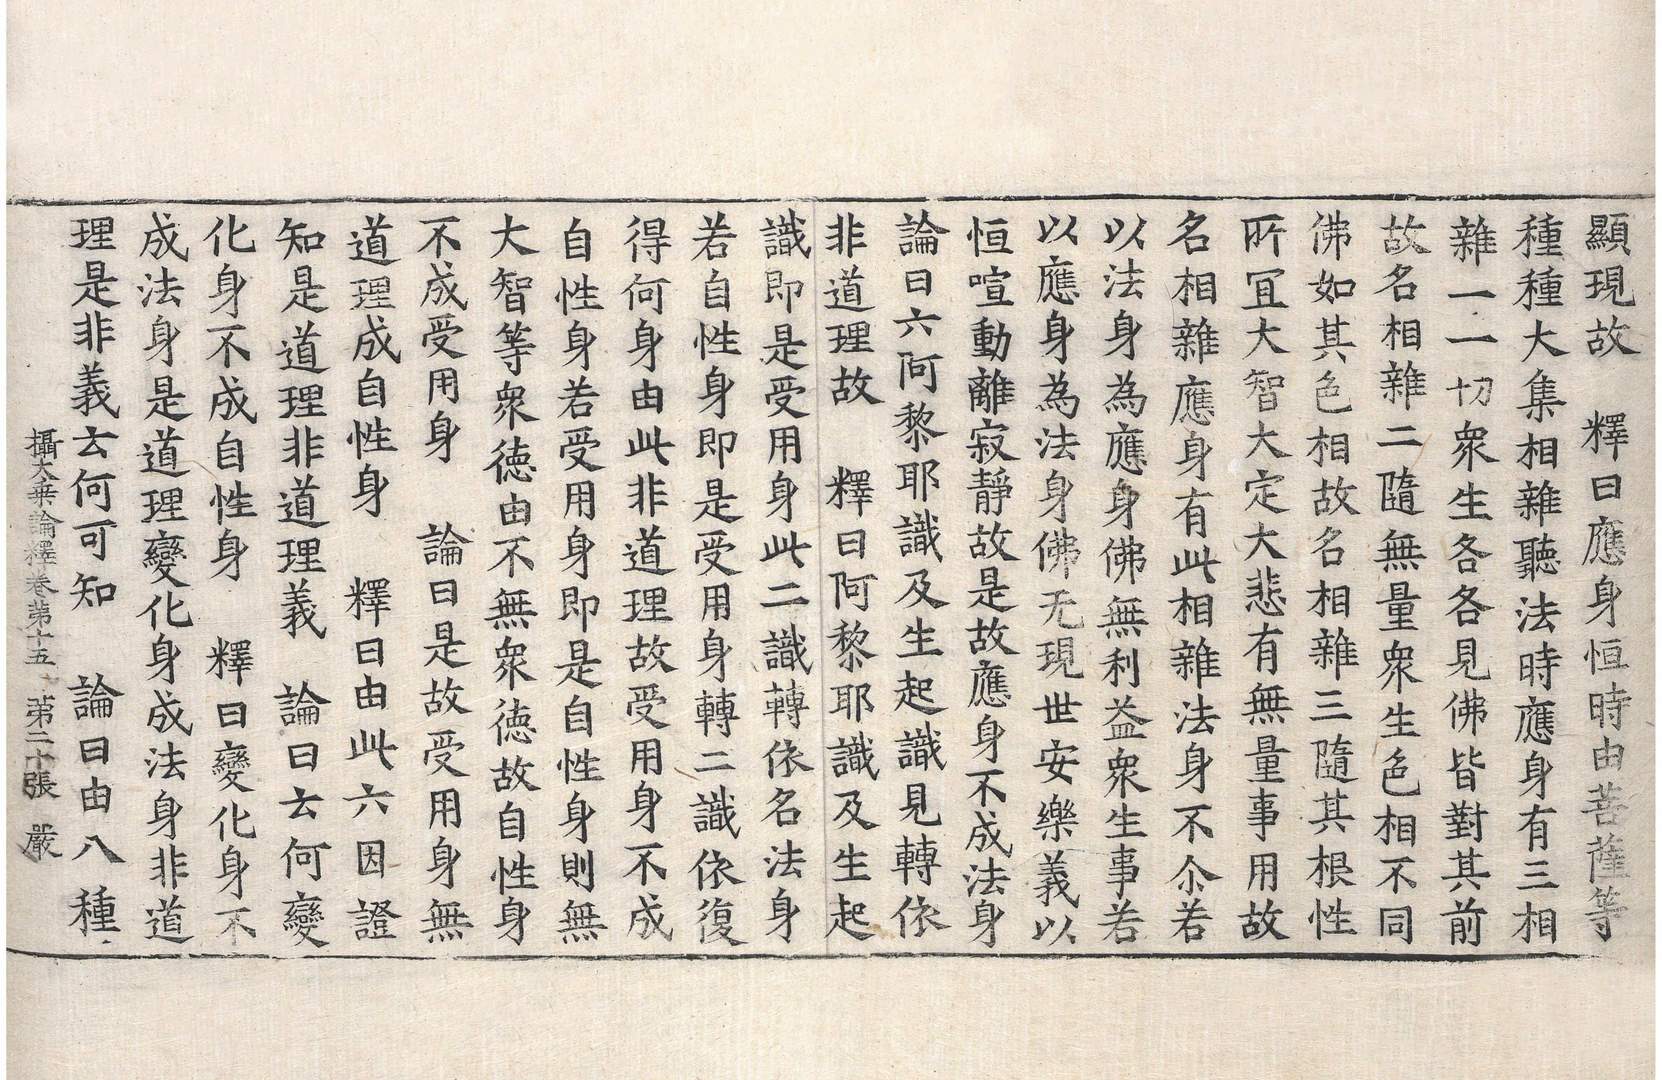 顯現故　釋曰應身恒時由菩薩等
種種大集相雜聽法時應身有三相
雜一一切衆生各各見佛皆對其前
故名相雜二隨無量衆生色相不同
佛如其色相故名相雜三隨其根性
所冝大智大定大悲有無量事用故
名相雜應身有此相雜法身不尒若
以法身為應身佛無利益衆生事若
以應身為法身佛无現世安樂義以
恒喧動離寂靜故是故應身不成法身
論曰六阿黎耶識及生起識見轉依
非道理故　釋曰阿黎耶識及生起
識即是受用身此二識轉依名法身
若自性身即是受用身轉二識依復
得何身由此非道理故受用身不成
自性身若受用身即是自性身則無
大智等衆德由不無衆德故自性身
不成受用身　論曰是故受用身無
道理成自性身　釋曰由此六因證
知是道理非道理義　論曰云何變
化身不成自性身　釋曰變化身不
成法身是道理變化身成法身非道
理是非義云何可知　論曰由八種
攝大乗論釋卷第十五　第二十張　嚴